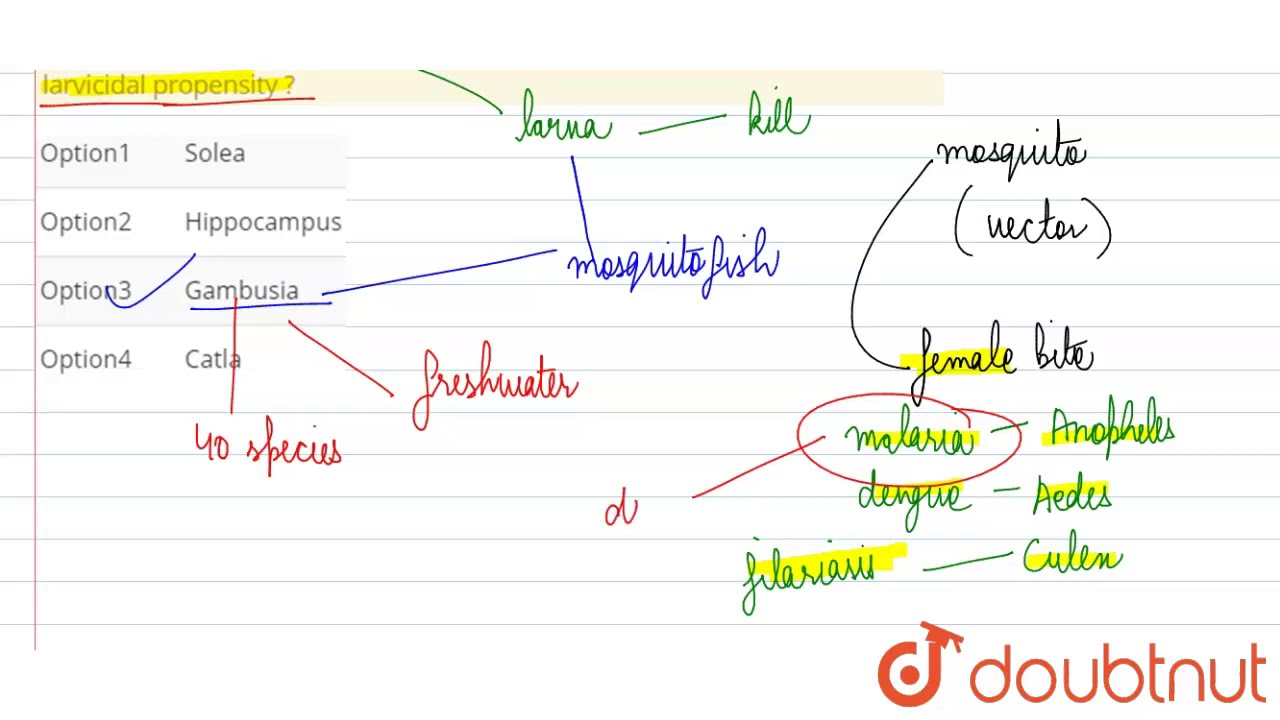 larvicidal propensity ?
larva — kill
Option1 Solea
mosquito
(vector)
Option2 Hippocampus
mosquitofish
Option3 Gambusia
female bite
Option4 Catla
freshwater
40 species
malaria — Anopheles
dengue — Aedes
d
filariasis — Culex
doubtnut